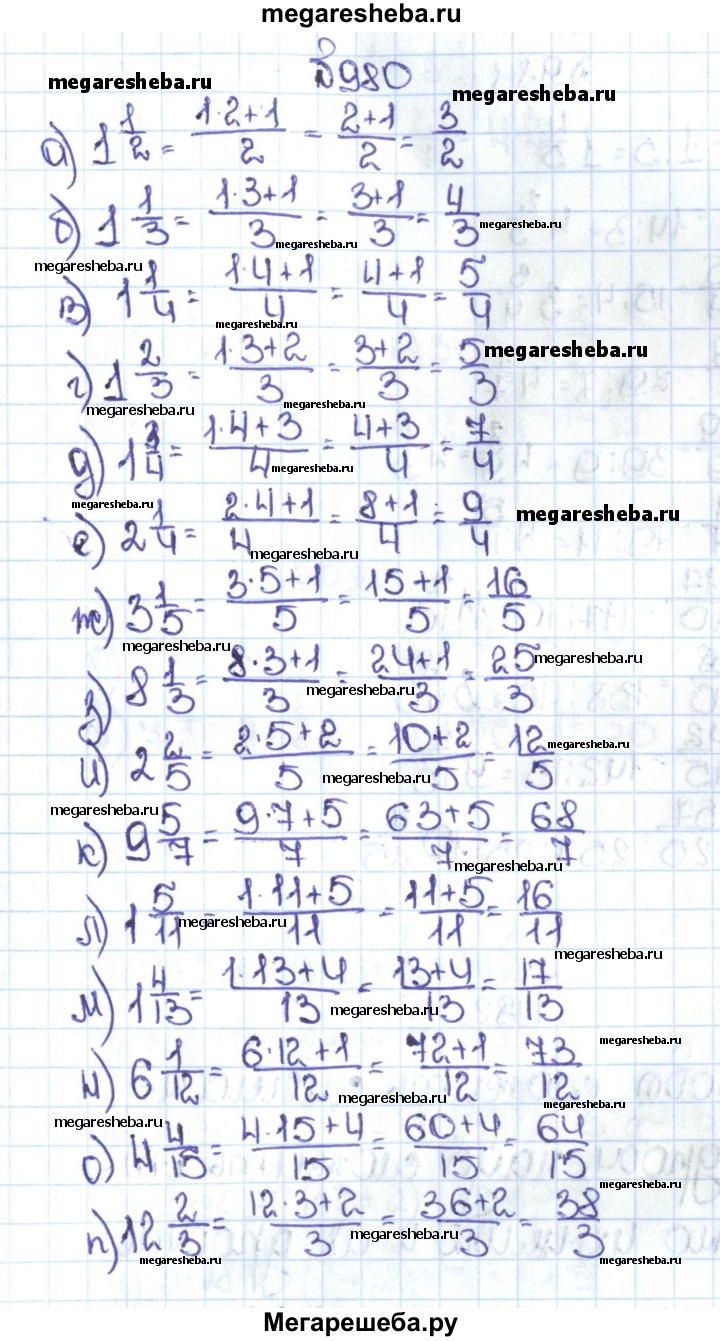 megaresheba.ru
№980
megaresheba.ru megaresheba.ru
а) 1 1/2 = (1·2+1)/2 = (2+1)/2 = 3/2
б) 1 1/3 = (1·3+1)/3 = (3+1)/3 = 4/3 megaresheba.ru
megaresheba.ru
megaresheba.ru
в) 1 1/4 = (1·4+1)/4 = (4+1)/4 = 5/4
megaresheba.ru
г) 1 2/3 = (1·3+2)/3 = (3+2)/3 = 5/3 megaresheba.ru
megaresheba.ru
д) 1 3/4 = (1·4+3)/4 = (4+3)/4 = 7/4
megaresheba.ru
megaresheba.ru
е) 2 1/4 = (2·4+1)/4 = (8+1)/4 = 9/4 megaresheba.ru
megaresheba.ru
ж) 3 1/5 = (3·5+1)/5 = (15+1)/5 = 16/5
megaresheba.ru
з) 8 1/3 = (8·3+1)/3 = (24+1)/3 = 25/3 megaresheba.ru
megaresheba.ru
и) 2 2/5 = (2·5+2)/5 = (10+2)/5 = 12/5 megaresheba.ru
megaresheba.ru
megaresheba.ru
к) 9 5/7 = (9·7+5)/7 = (63+5)/7 = 68/7 megaresheba.ru
megaresheba.ru
л) 1 5/11 = (1·11+5)/11 = (11+5)/11 = 16/11
megaresheba.ru
megaresheba.ru
м) 1 4/13 = (1·13+4)/13 = (13+4)/13 = 17/13
megaresheba.ru
megaresheba.ru
н) 6 1/12 = (6·12+1)/12 = (72+1)/12 = 73/12
megaresheba.ru
megaresheba.ru
megaresheba.ru
о) 4 4/15 = (4·15+4)/15 = (60+4)/15 = 64/15
megaresheba.ru
п) 12 2/3 = (12·3+2)/3 = (36+2)/3 = 38/3
megaresheba.ru
megaresheba.ru megaresheba.ru
Мегарешеба.ру